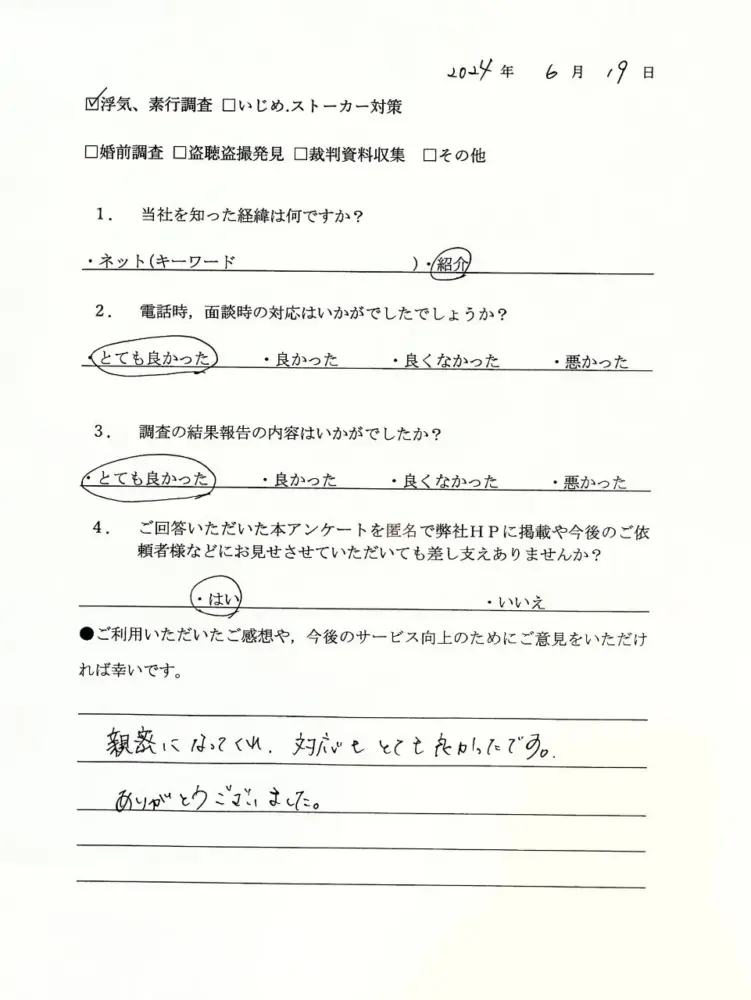 2024年 6月 19日
☑浮気、素行調査 □いじめ.ストーカー対策
□婚前調査 □盗聴盗撮発見 □裁判資料収集 □その他
1. 当社を知った経緯は何ですか?
・ネット(キーワード )・紹介
2. 電話時,面談時の対応はいかがでしたでしょうか?
・とても良かった ・良かった ・良くなかった ・悪かった
3. 調査の結果報告の内容はいかがでしたか?
・とても良かった ・良かった ・良くなかった ・悪かった
4. ご回答いただいた本アンケートを匿名で弊社HPに掲載や今後のご依
頼者様などにお見せさせていただいても差し支えありませんか?
・はい ・いいえ
●ご利用いただいたご感想や,今後のサービス向上のためにご意見をいただけ
れば幸いです。
親密になってくれ、対応もとても良かったです。
ありがとうございました。